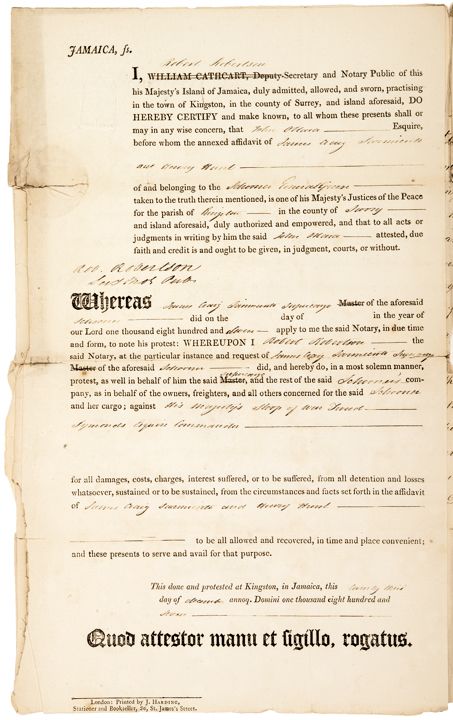 JAMAICA, ſs.
Robert Robertson
I, WILLIAM CATHCART, Deputy-Secretary and Notary Public of this
his Majesty's Island of Jamaica, duly admitted, allowed, and sworn, practising
in the town of Kingston, in the county of Surrey, and island aforesaid, DO
HEREBY CERTIFY and make known, to all whom these presents shall or
may in any wise concern, that John Esquire,
before whom the annexed affidavit of James Craig Sarmiento
and Henry Hunt
of and belonging to the Schooner
taken to the truth therein mentioned, is one of his Majesty's Justices of the Peace
for the parish of Kingston in the county of Surry
and island aforesaid, duly authorized and empowered, and that to all acts or
judgments in writing by him the said John attested, due
faith and credit is and ought to be given, in judgment, courts, or without.
Rob. Robertson
Pub.
Whereas James Craig Sarmiento Supercargo Master of the aforesaid
Schooner did on the day of in the year of
our Lord one thousand eight hundred and Seven apply to me the said Notary, in due time
and form, to note his protest: WHEREUPON I Robert Robertson the
said Notary, at the particular instance and request of James Craig Sarmiento Supercargo
Master of the aforesaid Schooner did, and hereby do, in a most solemn manner,
Supercargo
protest, as well in behalf of him the said Master, and the rest of the said Schooner's com-
pany, as in behalf of the owners, freighters, and all others concerned for the said Schooner
and her cargo; against His Majesty's Sloop of War
Symonds Esquire Commander
for all damages, costs, charges, interest suffered, or to be suffered, from all detention and losses
whatsoever, sustained or to be sustained, from the circumstances and facts set forth in the affidavit
of James Craig Sarmiento and Henry Hunt
to be all allowed and recovered, in time and place convenient;
and these presents to serve and avail for that purpose.
This done and protested at Kingston, in Jamaica, this twenty
day of December annoq. Domini one thousand eight hundred and
Seven
Quod attestor manu et sigillo, rogatus.
London: Printed by J. HARDING,
Stationer and Bookseller, 36, St. James's Street.